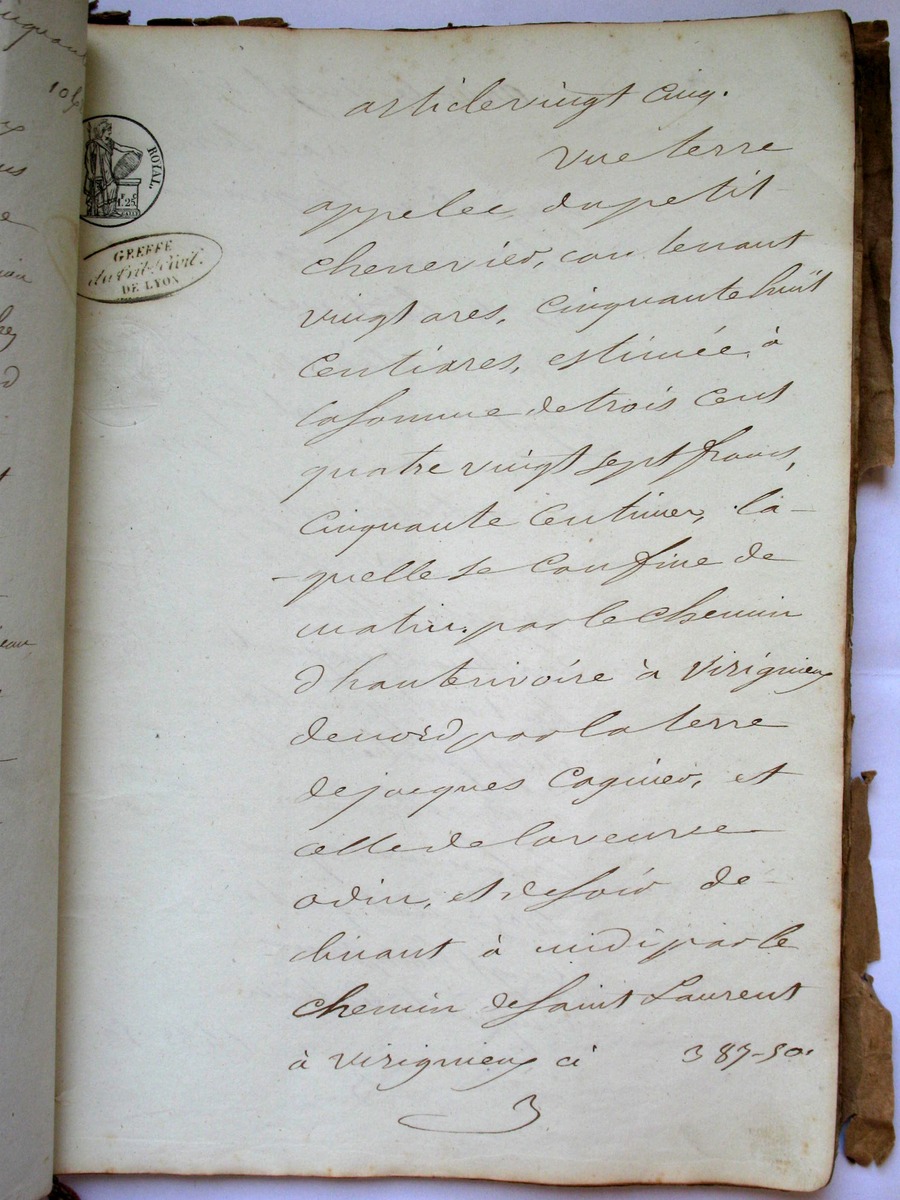 105
ROYAL.
1F. 25C
GREFFE
du Trib. Civil.
DE LYON
article vingt cinq.
une terre
appelee, du petit
chenevier, contenant
vingt ares, cinquante huit
centiares, estimée à
la somme de trois cent
quatre vingt sept francs,
cinquante centimes, la-
-quelle se confine de
matin par le chemin
d'hauterivoire à Virignieux
de nord par la terre
de jacques Cognier, et
celle de la veuve
odin, et de soir dé-
clinant à midi par le
chemin de Saint Laurent
à Virignieux ci 387-50.